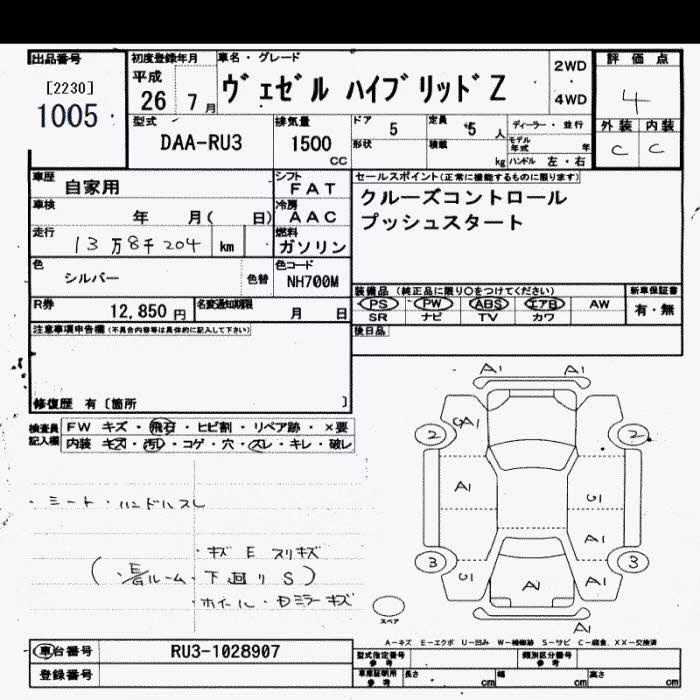 出品番号
[2230]
1005
初度登録年月
平成 26 年 7 月
車名・グレード
ヴェゼル ハイブリッドZ
2WD
・
4WD
評価点
4
外装 内装
C C
型式
DAA-RU3
排気量
1500
CC
ドア 5
形状
定員 5 人
積載 kg
ディーラー・並行
モデル年式 年
ハンドル 左・右
車歴 自家用
シフト
FAT
車検 年 月( 日)
冷房
AAC
走行 13万8千204 km
燃料
ガソリン
色 シルバー 色替
色コード
NH700M
R券 12,850 円
名変通知期限 月 日
セールスポイント(正常に機能するものに限ります)
クルーズコントロール
プッシュスタート
装備品 (純正品に限り○をつけてください)
PS PW ABS エアB AW
SR ナビ TV カワ
新車保証書
有・無
後日品
注意事項申告欄(不具合内容等は具体的に記入して下さい)
修復歴 有〔箇所 〕
検査員記入欄
FW キズ・飛石・ヒビ割・リペア跡・×要
内装 キズ・汚れ・コゲ・穴・スレ・キレ・破レ
・シート・ハンドルスレ
・キズ E スリキズ
ルーム・下廻り S)
・ホイール・Dミラーキズ
A1 A1
GA1
2 2
A1
U1
A1
3 3
U1 A1 A1
A1
スペア
A-キズ E-エクボ U-凹み W-補修跡 S-サビ C-腐食、XX-交換済
車台番号 RU3-1028907
登録番号
型式指定番号 参考
類別区分番号 参考
車庫証明用 参考 長さ cm 幅 cm 高さ cm